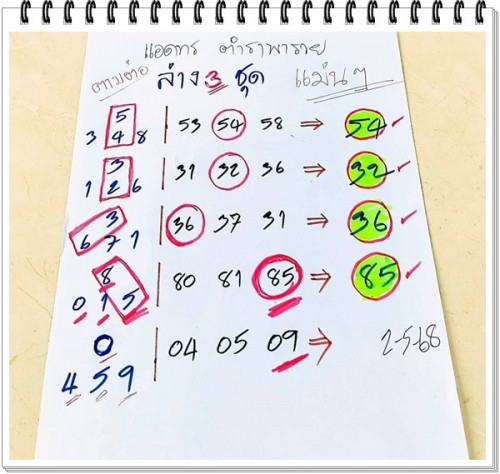 แอดการ ตำราพารวย
ตามต่อ ล่าง 3 ชุด แม่นๆ
5
3 4 8 53 54 58 ⇒ 54 ✓
3
1 2 6 31 32 36 ⇒ 32 ✓
3
6 7 1 36 37 31 ⇒ 36 ✓
8
0 1 5 80 81 85 ⇒ 85 ✓
0
4 5 9 04 05 09 ⇒ 2-5-68